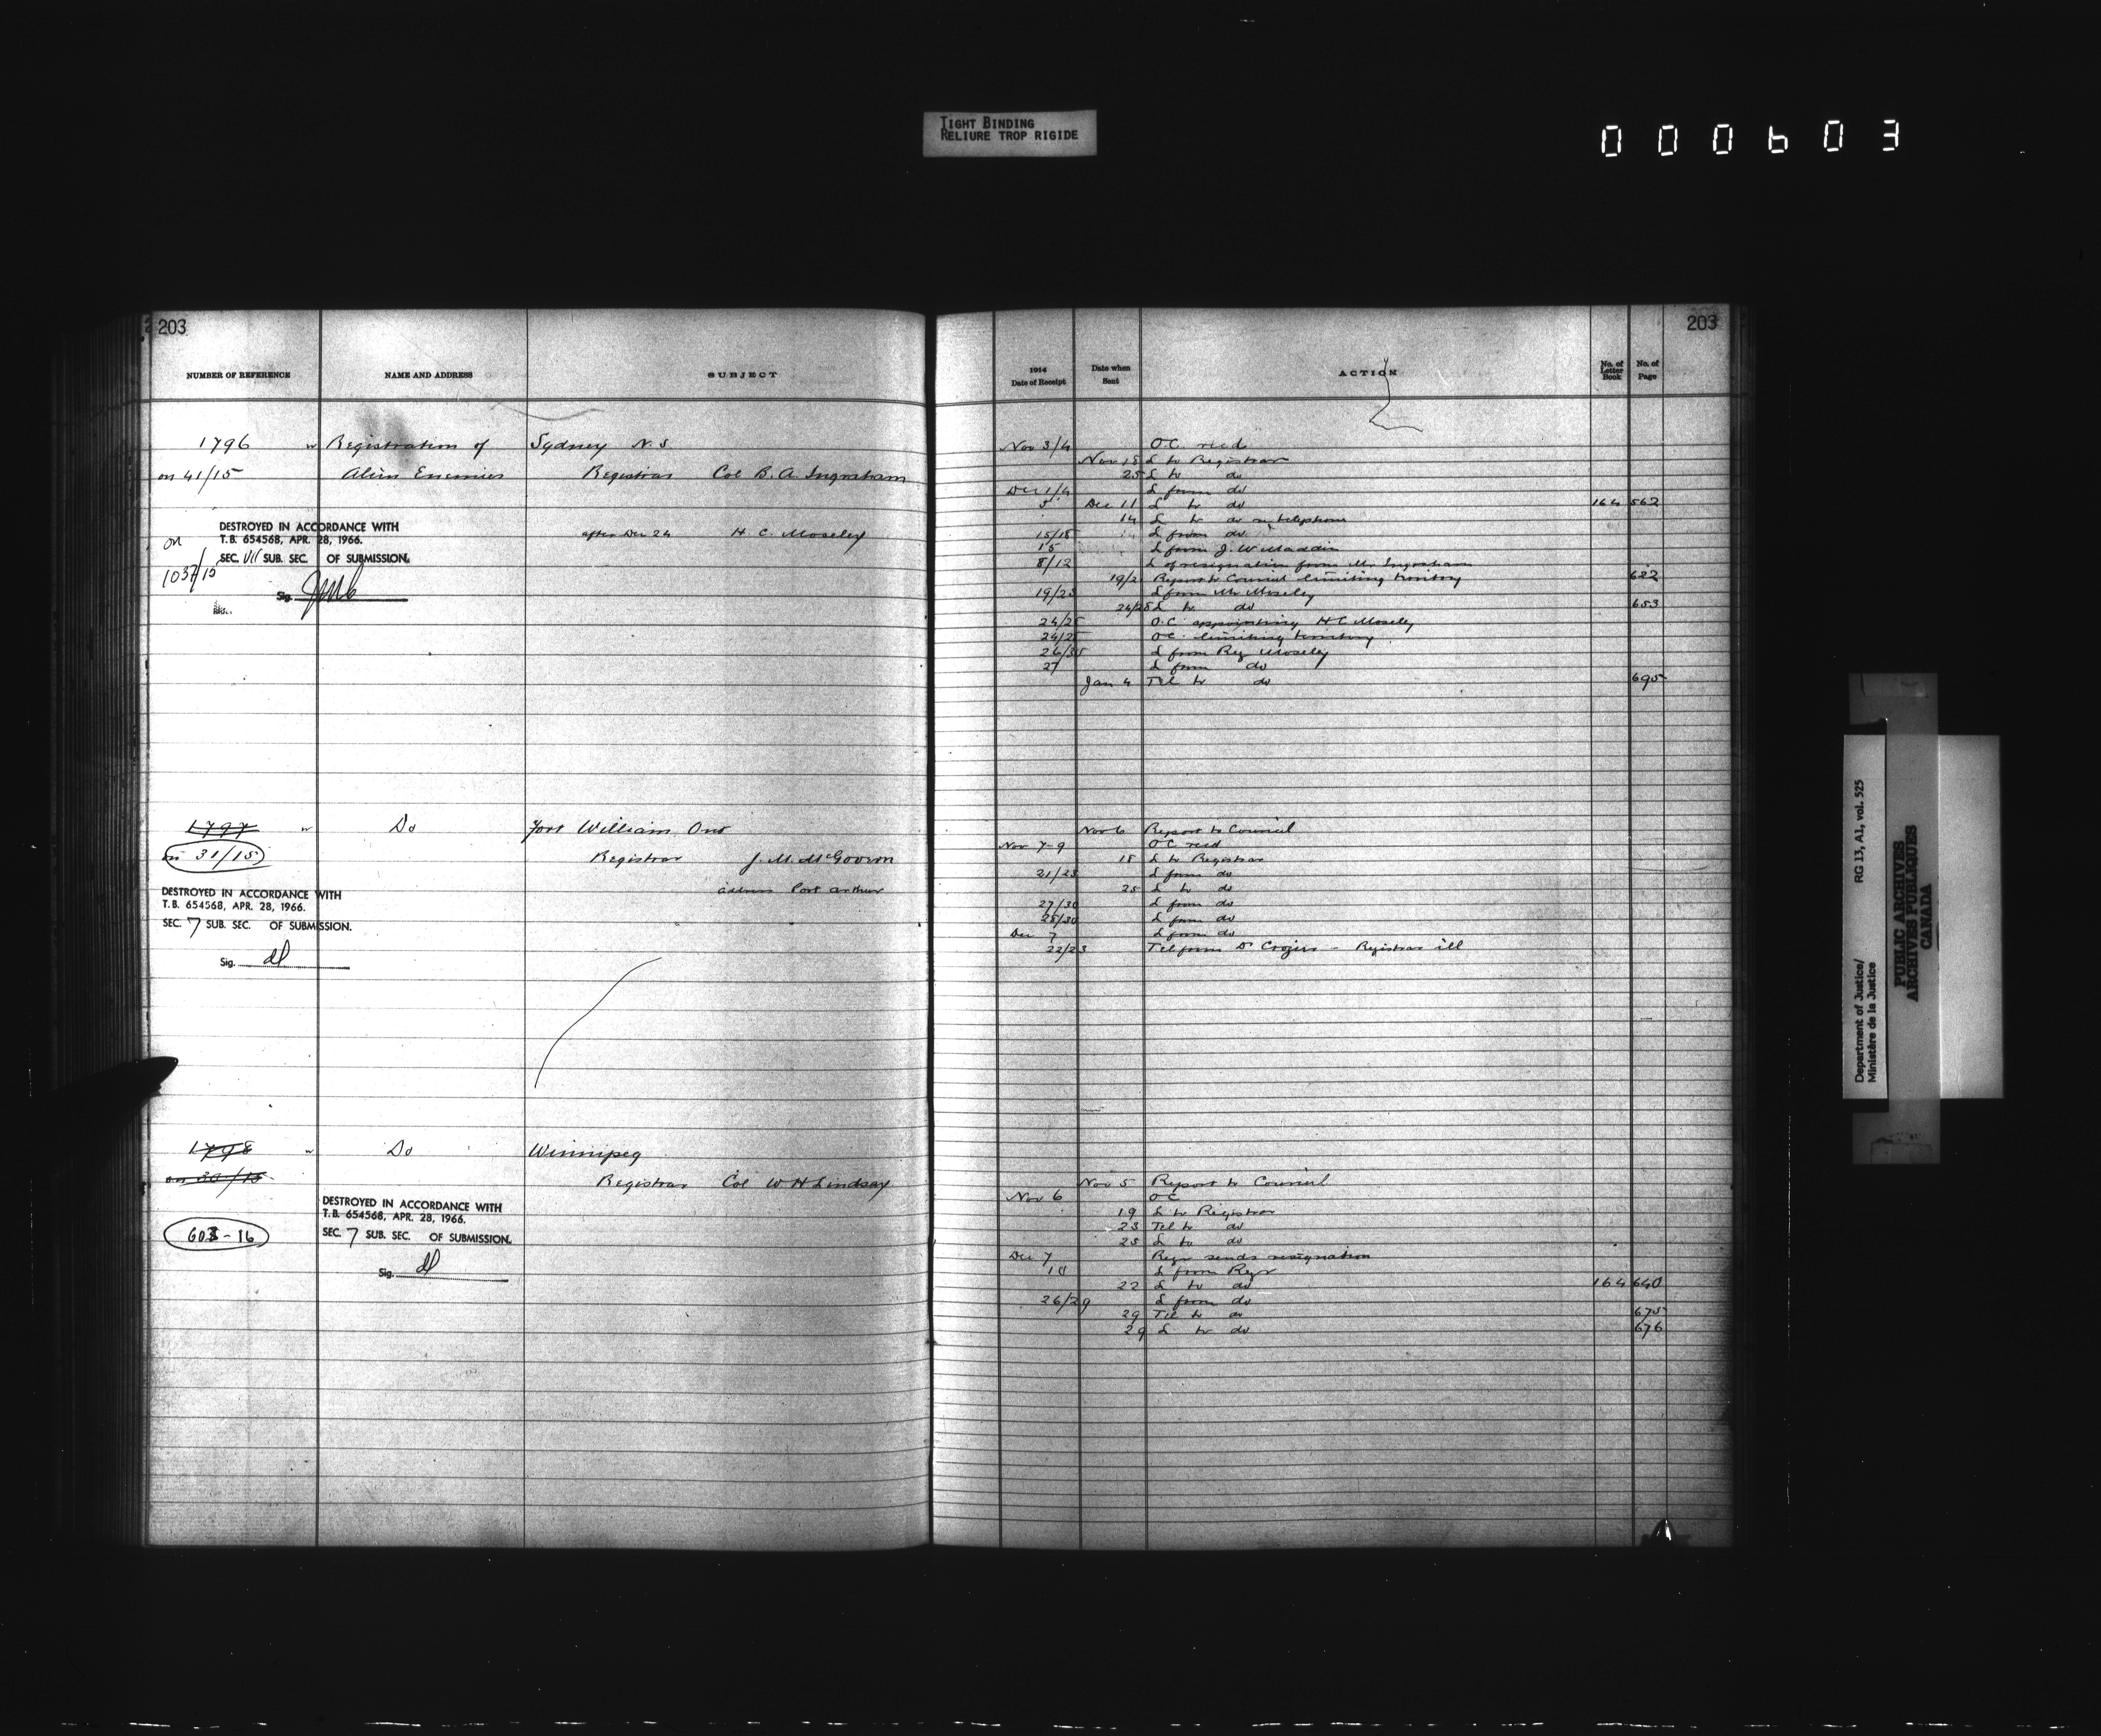 TIGHT BINDING
RELIURE TROP RIGIDE
000603
203
NUMBER OF REFERENCE NAME AND ADDRESS SUBJECT
1796 Registration of Sydney N.S
on 41/15 Alien Enemies Registrar Col B. A. Ingraham
DESTROYED IN ACCORDANCE WITH
T.B. 654568, APR. 28, 1966.
SEC. VII SUB. SEC. OF SUBMISSION.
Sig.
on
1037/15
after Dec 24 H. C. Moseley
1797 Do Fort William Ont
on 31/15 Registrar J. M. McGovern
address Port Arthur
DESTROYED IN ACCORDANCE WITH
T.B. 654568, APR. 28, 1966.
SEC. 7 SUB. SEC. OF SUBMISSION.
Sig.
1798 Do Winnipeg
on 30/15 Registrar Col W H Lindsay
DESTROYED IN ACCORDANCE WITH
T.B. 654568, APR. 28, 1966.
SEC. 7 SUB. SEC. OF SUBMISSION.
Sig.
603-16
203
1914 Date of Receipt Date when Sent ACTION No. of Letter Book No. of Page
Nov 3/4 O.C. recd
Nov 18 L to Registrar
25 L to do
Dec 1/4 L from do
5 Dec 11 L to do 164 562
14 L to do telephone
15/18 L from do
15 L from J. W. Maddin
8/12 L of resignation from Mr Ingraham
19/21 Report to Council limiting territory 622
19/23 L from Mr Moseley
24/28 L to do 653
24/28 O.C. appointing H C Moseley
24/28 O.C. limiting territory
26/ L from Reg Moseley
27 L from do
Jan 4 Tel to do 695
Nov 6 Report to Council
Nov 7-9 O C recd
18 L to Registrar
21/23 L from do
25 L to do
27/30 L from do
28/30 L from do
Dec 7 L from do
22/23 Tel from Dr Crozier - Registrar ill
Nov 5 Report to Council
Nov 6 O C
19 L to Registrar
23 Tel to do
25 L to do
Dec 7 Regr sends resignation
10 L from Regr
22 L to do 164 640
26/29 L from do
29 Tel to do 675
29 L to do 676
Department of Justice/
Ministère de la Justice
RG 13, A1, vol. 525
PUBLIC ARCHIVES
ARCHIVES PUBLIQUES
CANADA